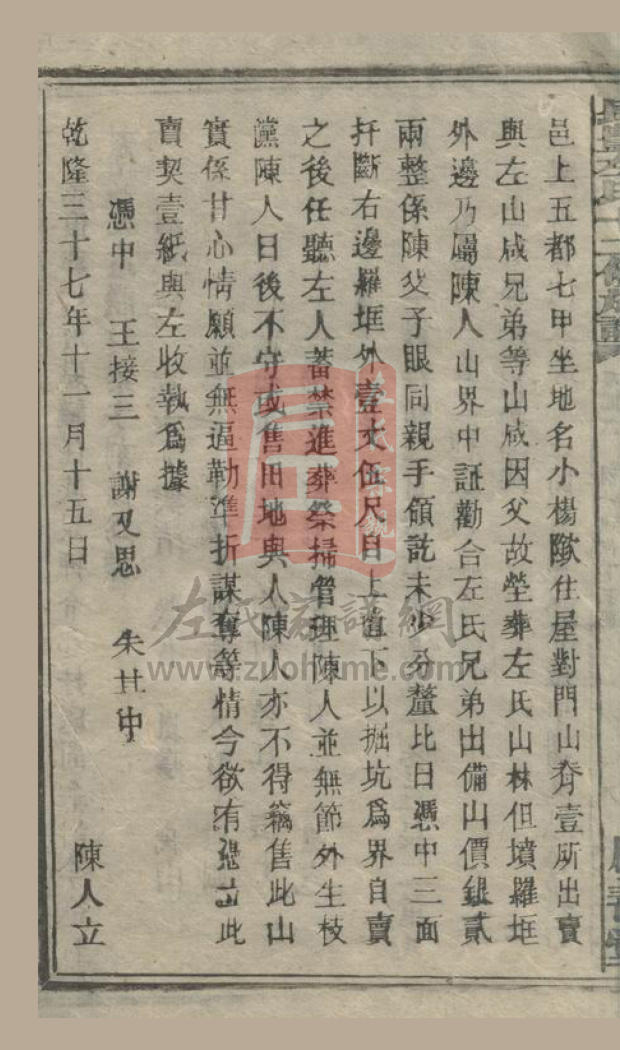 邑上五都七甲坐地名小楊歐住屋對門山脊壹所出賣
與左山咸兄弟等山咸因父故塋葬左氏山林但墳羅框
外邊乃屬陳人山界中証勸合左氏兄弟出備山價銀貳
兩整係陳父子眼同親手領訖未少分釐比日憑中三面
扦斷右邊羅框外壹丈伍尺自上直下以掘坑爲界自賣
之後任聽左人蓄禁進葬祭掃管理陳人並無節外生枝
黨陳人日後不守或售田地與人陳人亦不得竊售此山
實係甘心情願並無逼勒準折謀奪等情今欲有憑立此
賣契壹紙與左收執爲據
憑中 王接三 謝又思 朱其中
乾隆三十七年十一月十五日 陳人立
左氏家譜網
www.zuohome.com